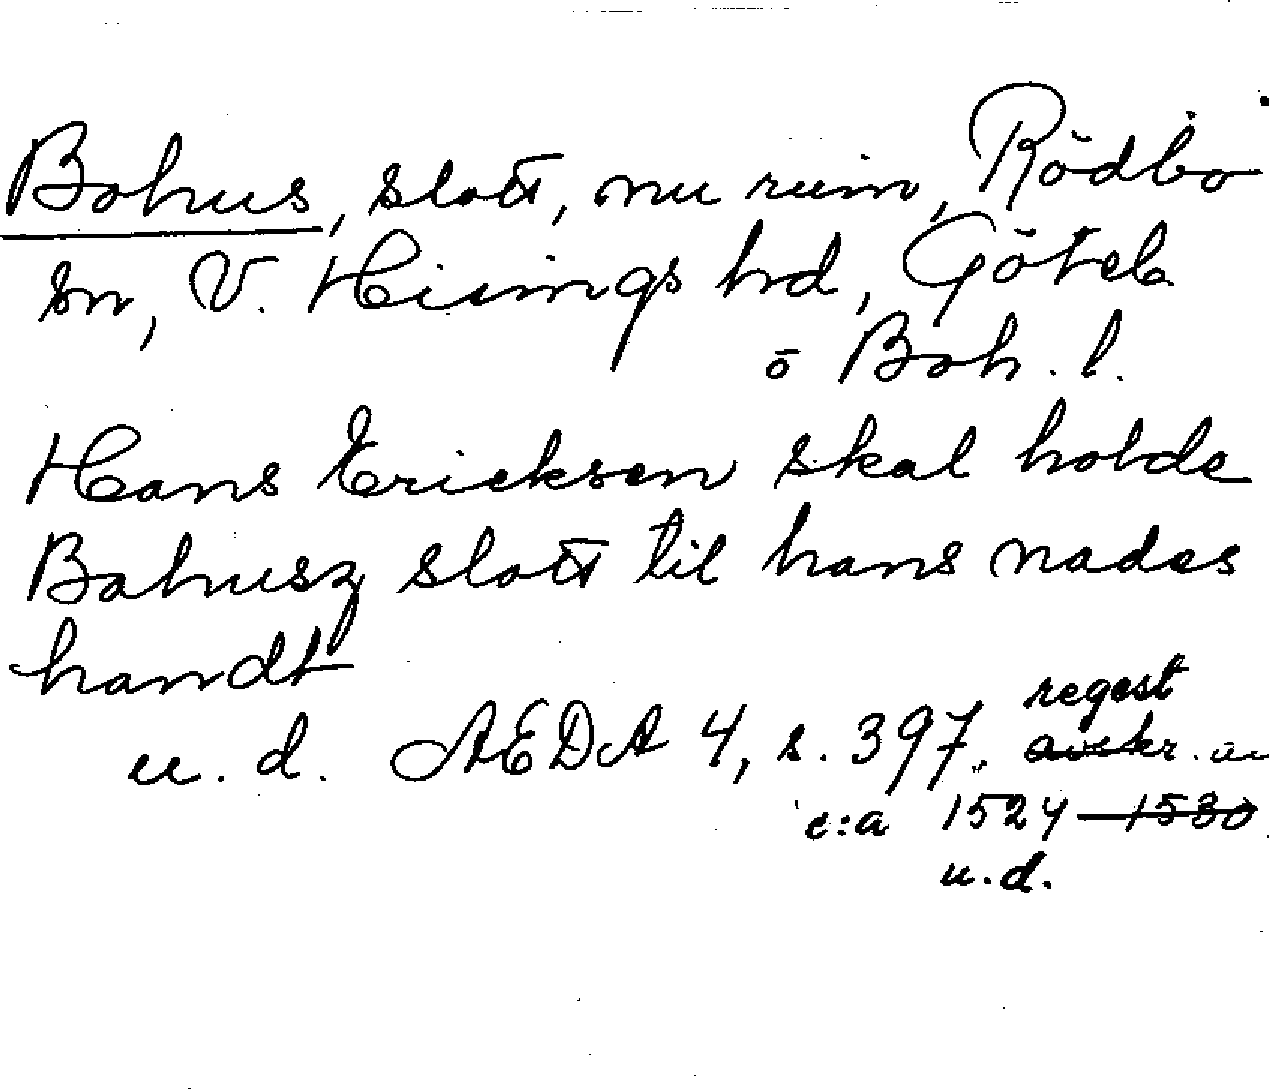 Bohus, slott, nu ruin, Rödbo
sn, V. Hisings hrd, Göteb.
o Boh. l.
Hans Ericksen skal holde
Bahusz slott til hans nades
handt
u. d. AEDA 4, s. 397. regest
avskr. av
c:a 1524 – 1530
u.d.